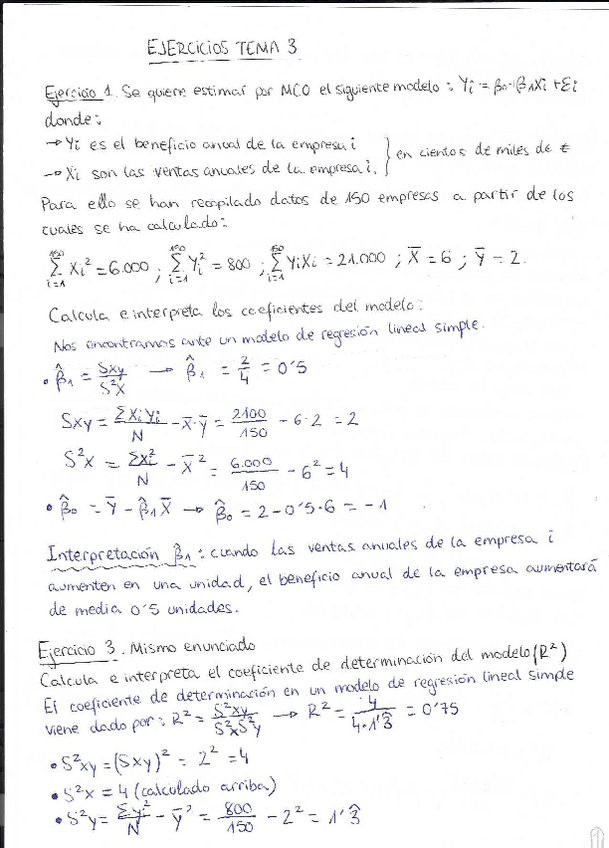 EJERCICIOS TEMA 3
Ejercicio 1. Se quiere estimar por MCO el siguiente modelo: Yi = β0+β1Xi + Ei
donde:
→ Yi es el beneficio anual de la empresa i
→ Xi son las ventas anuales de la empresa i. } en cientos de miles de €
Para ello se han recopilado datos de 150 empresas a partir de los
cuales se ha calculado:
150∑i=1 Xi² = 6.000 ; 150∑i=1 Yi² = 800 ; 150∑i=1 YiXi = 21.000 ; X̄ = 6 ; Ȳ = 2.
Calcula e interpreta los coeficientes del modelo:
Nos encontramos ante un modelo de regresión lineal simple.
• β̂1 = Sxy/S²x → β̂1 = 2/4 = 0'5
Sxy = ∑XiYi/N - X̄·Ȳ = 2100/150 - 6·2 = 2
S²x = ∑Xi²/N - X̄² = 6.000/150 - 6² = 4
• β̂0 = Ȳ - β̂1X̄ → β̂0 = 2-0'5·6 = -1
Interpretación β̂1: cuando las ventas anuales de la empresa i
aumenten en una unidad, el beneficio anual de la empresa aumentará
de media 0'5 unidades.
Ejercicio 3. Mismo enunciado
Calcula e interpreta el coeficiente de determinación del modelo (R²)
El coeficiente de determinación en un modelo de regresión lineal simple
viene dado por: R² = S²xy/S²xS²y → R² = 4/4·1'3̂ = 0'75
• S²xy = (Sxy)² = 2² = 4
• S²x = 4 (calculado arriba)
• S²y = ∑y²/N - ȳ² = 800/150 - 2² = 1'3̂